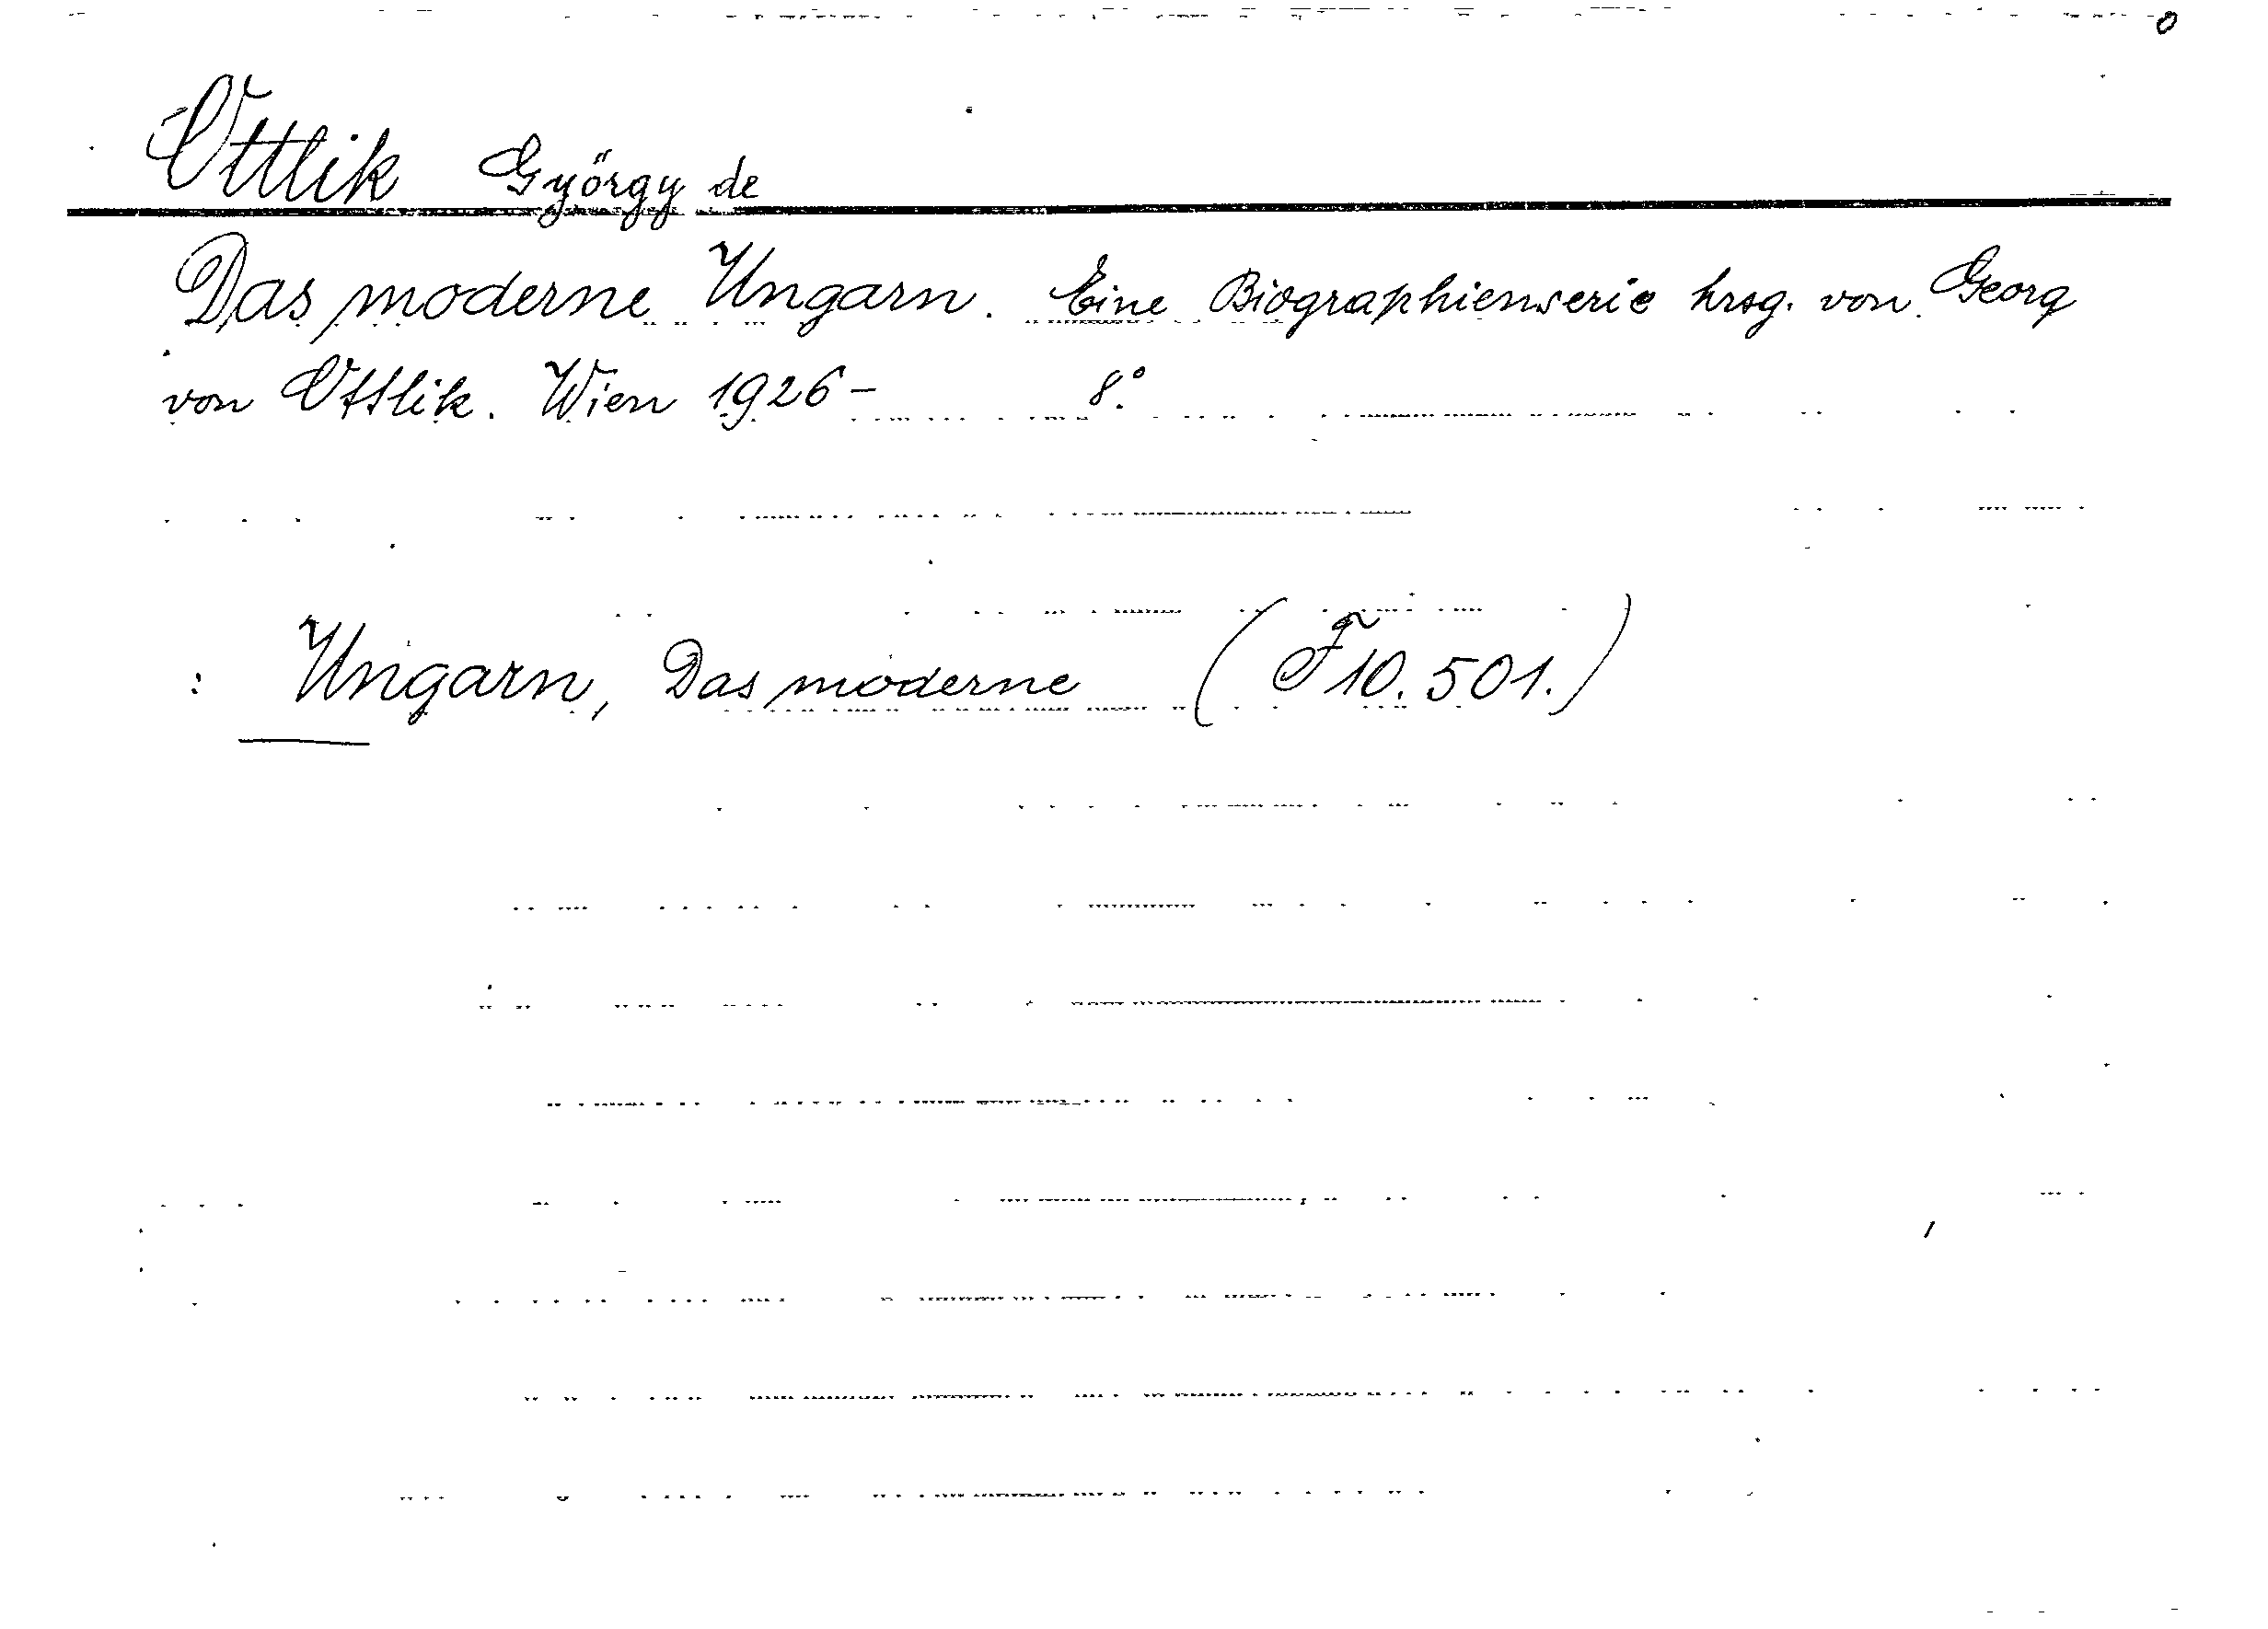 Ottlik György de
Das moderne Ungarn. Eine Biographienserie hrsg. von Georg
von Ottlik. Wien 1926- 8°
: Ungarn, Das moderne (F 10.501.)